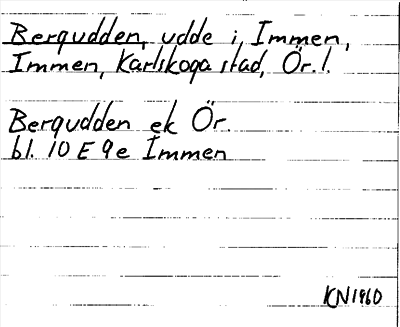 Bergudden, udde i Immen,
Immen, Karlskoga stad, Ör. l.
Bergudden ek Ör.
bl. 10 E 9e Immen
KN1960